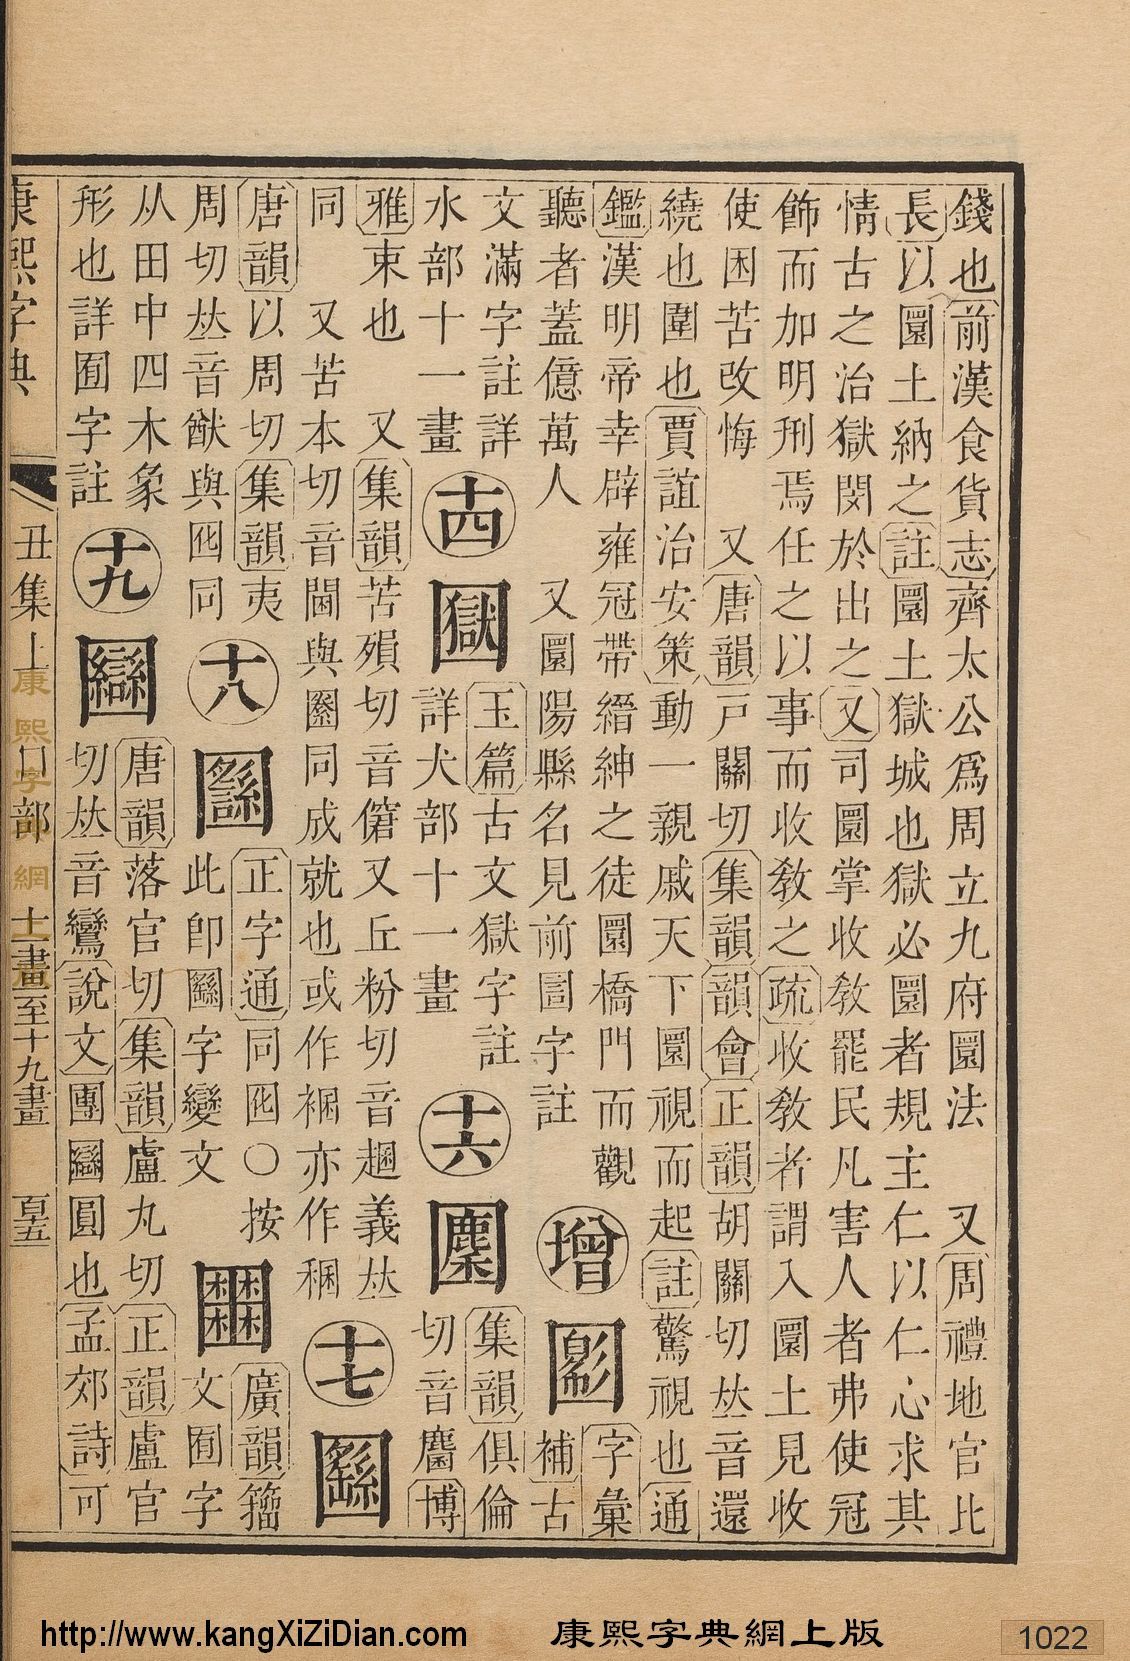 錢也前漢食貨志齊太公爲周立九府圜法 又周禮地官比
長以圜土納之註圜土獄城也獄必圜者規主仁以仁心求其
情古之治獄閔於出之又司圜掌收敎罷民凡害人者弗使冠
飾而加明刑焉任之以事而收敎之疏收敎者謂入圜土見收
使困苦改悔 又唐韻戸關切集韻韻會正韻胡關切𠀤音還
繞也圍也賈誼治安策動一親戚天下圜視而起註驚視也通
鑑漢明帝幸辟雍冠帶縉紳之徒圜橋門而觀
聽者蓋億萬人 又圜陽縣名見前圁字註
增
字彙補古
文滿字註詳
水部十一畫
十四
玉篇古文獄字註
詳犬部十一畫
十六
集韻俱倫
切音麕博
雅束也 又集韻苦殞切音𪁪又丘粉切音趣義𠀤
同 又苦本切音閫與壼同成就也或作裍亦作稇
十七
唐韻以周切集韻夷
周切𠀤音猷與囮同
十八
正字通同囮○按
此卽𡈙字變文
廣韻籀
文囿字
从田中四木象
形也詳囿字註
十九
圞
唐韻落官切集韻盧丸切正韻盧官
切𠀤音鸞說文團圞圓也孟郊詩可
康熙字典
丑集上
口部
十一畫至十九畫
百五
康熙字典網
http://www.kangXiZiDian.com
康熙字典網上版
1022